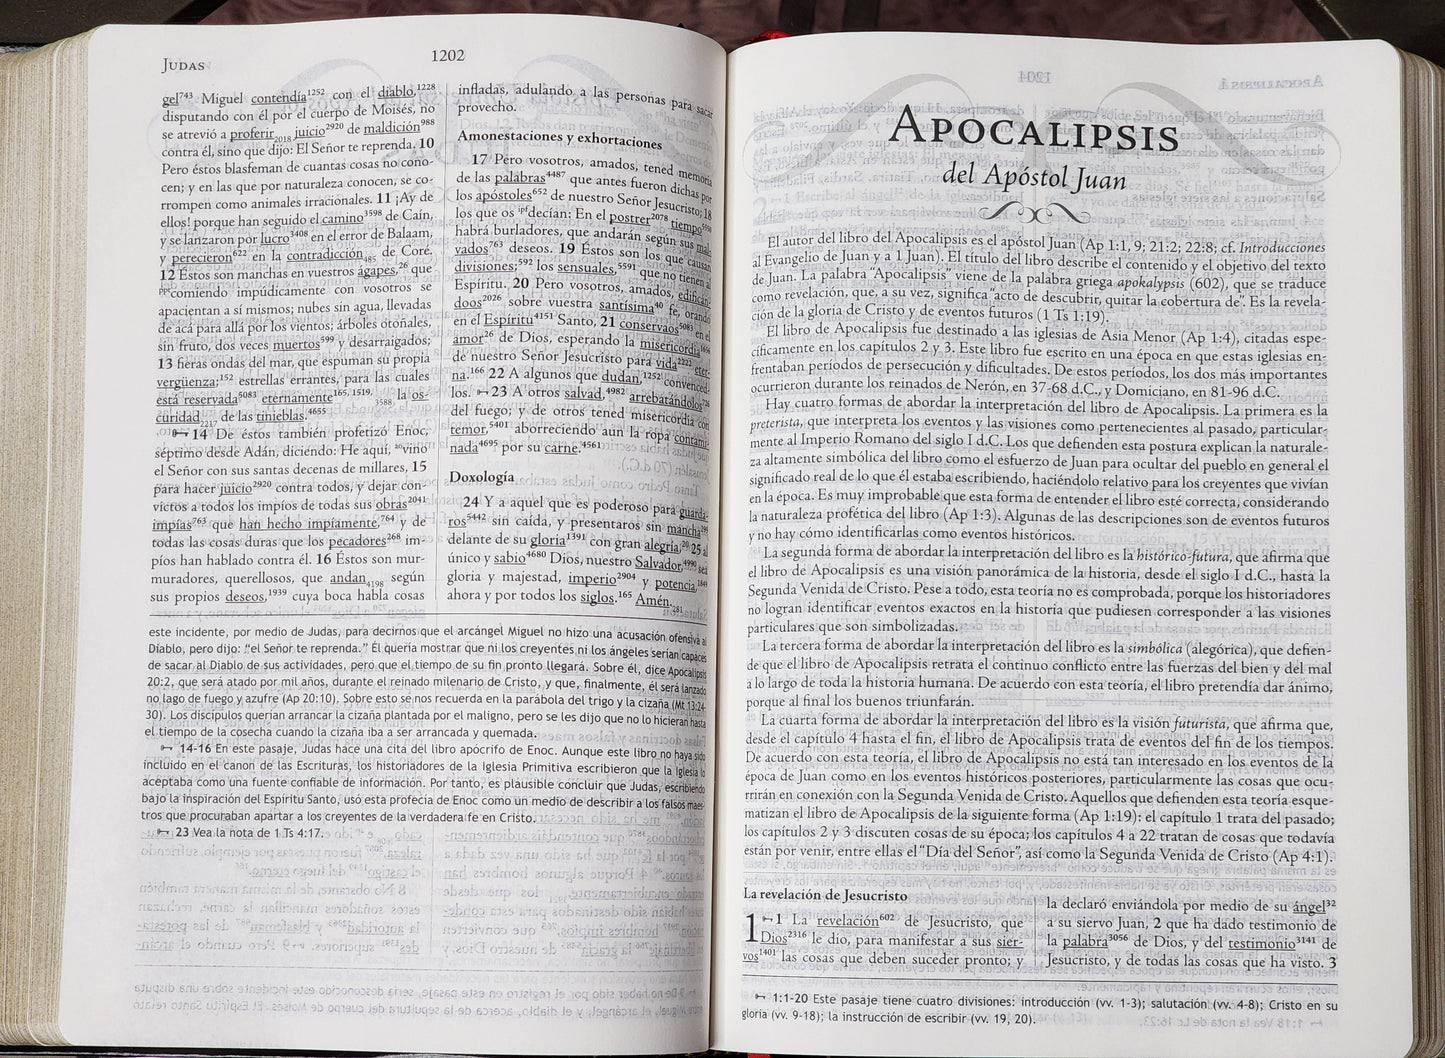 JUDAS
1202
gel743 Miguel contendía1252 con el diablo,1228
disputando con él por el cuerpo de Moisés, no
se atrevió a proferir2018 juicio2920 de maldición988
contra él, sino que dijo: El Señor te reprenda. 10
Pero éstos blasfeman de cuantas cosas no cono-
cen; y en las que por naturaleza conocen, se co-
rrompen como animales irracionales. 11 ¡Ay de
ellos! porque han seguido el camino3598 de Caín,
y se lanzaron por lucro3408 en el error de Balaam,
y perecieron622 en la contradicción485 de Coré.
12 Éstos son manchas en vuestros ágapes,26 que
ppcomiendo impúdicamente con vosotros se
apacientan a sí mismos; nubes sin agua, llevadas
de acá para allá por los vientos; árboles otoñales,
sin fruto, dos veces muertos599 y desarraigados;
13 fieras ondas del mar, que espuman su propia
vergüenza;152 estrellas errantes, para las cuáles
está reservada5083 eternamente165, 1519, 3588 la os-
curidad2217 de las tinieblas.4655
14 De éstos también profetizó Enoc,
séptimo desde Adán, diciendo: He aquí, aovino
el Señor con sus santas decenas de millares, 15
para hacer juicio2920 contra todos, y dejar con-
victos a todos los impíos de todas sus obras2041
impías763 que han hecho impíamente,764 y de
todas las cosas duras que los pecadores268 im-
píos han hablado contra él. 16 Éstos son mur-
muradores, querellosos, que andan4198 según
sus propios deseos,1939 cuya boca habla cosas
infladas, adulando a las personas para sacar
provecho.
Amonestaciones y exhortaciones
17 Pero vosotros, amados, tened memoria
de las palabras4487 que antes fueron dichas por
los apóstoles652 de nuestro Señor Jesucristo; 18
los que os ipfdecían: En el postrer2078 tiempo5550
habrá burladores, que andarán según sus mal-
vados763 deseos. 19 Éstos son los que causan
divisiones;592 los sensuales,5591 que no tienen al
Espíritu. 20 Pero vosotros, amados, edificán-
doos2026 sobre vuestra santísima40 fe, orando
en el Espíritu4151 Santo, 21 conservaos5083 en el
amor26 de Dios, esperando la misericordia1656
de nuestro Señor Jesucristo para vida2222 eter-
na.166 22 A algunos que dudan,1252 convenced-
los. 23 A otros salvad,4982 arrebatándolos726
del fuego; y de otros tened misericordia con
temor,5401 aborreciendo aun la ropa contami-
nada4695 por su carne.4561
Doxología
24 Y a aquel que es poderoso para guarda-
ros5442 sin caída, y presentaros sin mancha299
delante de su gloria1391 con gran alegría,20 25 al
único y sabio4680 Dios, nuestro Salvador,4990 sea
gloria y majestad, imperio2904 y potencia,1849
ahora y por todos los siglos.165 Amén.281
este incidente, por medio de Judas, para decirnos que el arcángel Miguel no hizo una acusación ofensiva al
Diablo, pero dijo: "el Señor te reprenda." Él quería mostrar que ni los creyentes ni los ángeles serían capaces
de sacar al Diablo de sus actividades, pero que el tiempo de su fin pronto llegará. Sobre él, dice Apocalipsis
20:2, que será atado por mil años, durante el reinado milenario de Cristo, y que, finalmente, él será lanzado
no lago de fuego y azufre (Ap 20:10). Sobre esto se nos recuerda en la parábola del trigo y la cizaña (Mt 13:24-
30). Los discípulos querían arrancar la cizaña plantada por el maligno, pero se les dijo que no lo hicieran hasta
el tiempo de la cosecha cuando la cizaña iba a ser arrancada y quemada.
14-16 En este pasaje, Judas hace una cita del libro apócrifo de Enoc. Aunque este libro no haya sido
incluido en el canon de las Escrituras, los historiadores de la Iglesia Primitiva escribieron que la Iglesia lo
aceptaba como una fuente confiable de información. Por tanto, es plausible concluir que Judas, escribiendo
bajo la inspiración del Espíritu Santo, usó esta profecía de Enoc como un medio de describir a los falsos maes-
tros que procuraban apartar a los creyentes de la verdadera fe en Cristo.
23 Vea la nota de 1 Ts 4:17.
APOCALIPSIS
del Apóstol Juan
El autor del libro del Apocalipsis es el apóstol Juan (Ap 1:1, 9; 21:2; 22:8; cf. Introducciones
al Evangelio de Juan y a 1 Juan). El título del libro describe el contenido y el objetivo del texto
de Juan. La palabra "Apocalipsis" viene de la palabra griega apokalypsis (602), que se traduce
como revelación, que, a su vez, significa "acto de descubrir, quitar la cobertura de". Es la revela-
ción de la gloria de Cristo y de eventos futuros (1 Ts 1:19).
El libro de Apocalipsis fue destinado a las iglesias de Asia Menor (Ap 1:4), citadas espe-
cíficamente en los capítulos 2 y 3. Este libro fue escrito en una época en que estas iglesias en-
frentaban períodos de persecución y dificultades. De estos períodos, los dos más importantes
ocurrieron durante los reinados de Nerón, en 37-68 d.C., y Domiciano, en 81-96 d.C.
Hay cuatro formas de abordar la interpretación del libro de Apocalipsis. La primera es la
preterista, que interpreta los eventos y las visiones como pertenecientes al pasado, particular-
mente al Imperio Romano del siglo I d.C. Los que defienden esta postura explican la naturale-
za altamente simbólica del libro como el esfuerzo de Juan para ocultar del pueblo en general el
significado real de lo que él estaba escribiendo, haciéndolo relativo para los creyentes que vivían
en la época. Es muy improbable que esta forma de entender el libro esté correcta, considerando
la naturaleza profética del libro (Ap 1:3). Algunas de las descripciones son de eventos futuros
y no hay cómo identificarlas como eventos históricos.
La segunda forma de abordar la interpretación del libro es la histórico-futura, que afirma que
el libro de Apocalipsis es una visión panorámica de la historia, desde el siglo I d.C., hasta la
Segunda Venida de Cristo. Pese a todo, esta teoría no es comprobada, porque los historiadores
no logran identificar eventos exactos en la historia que pudiesen corresponder a las visiones
particulares que son simbolizadas.
La tercera forma de abordar la interpretación del libro es la simbólica (alegórica), que defien-
de que el libro de Apocalipsis retrata el continuo conflicto entre las fuerzas del bien y del mal
a lo largo de toda la historia humana. De acuerdo con esta teoría, el libro pretendía dar ánimo,
porque al final los buenos triunfarán.
La cuarta forma de abordar la interpretación del libro es la visión futurista, que afirma que,
desde el capítulo 4 hasta el fin, el libro de Apocalipsis trata de eventos del fin de los tiempos.
De acuerdo con esta teoría, el libro de Apocalipsis no está tan interesado en los eventos de la
época de Juan como en los eventos históricos posteriores, particularmente las cosas que ocu-
rrirán en conexión con la Segunda Venida de Cristo. Aquellos que defienden esta teoría esque-
matizan el libro de Apocalipsis de la siguiente forma (Ap 1:19): el capítulo 1 trata del pasado;
los capítulos 2 y 3 discuten cosas de su época; los capítulos 4 a 22 tratan de cosas que todavía
están por venir, entre ellas el "Día del Señor", así como la Segunda Venida de Cristo (Ap 4:1).
La revelación de Jesucristo
1 1 La revelación602 de Jesucristo, que
Dios2316 le dio, para manifestar a sus sier-
vos1401 las cosas que deben suceder pronto; y
la declaró enviándola por medio de su ángel32
a su siervo Juan, 2 que ha dado testimonio de
la palabra3056 de Dios, y del testimonio3141 de
Jesucristo, y de todas las cosas que ha visto. 3
1:1-20 Este pasaje tiene cuatro divisiones: introducción (vv. 1-3); salutación (vv. 4-8); Cristo en su
gloria (vv. 9-18); la instrucción de escribir (vv. 19, 20).